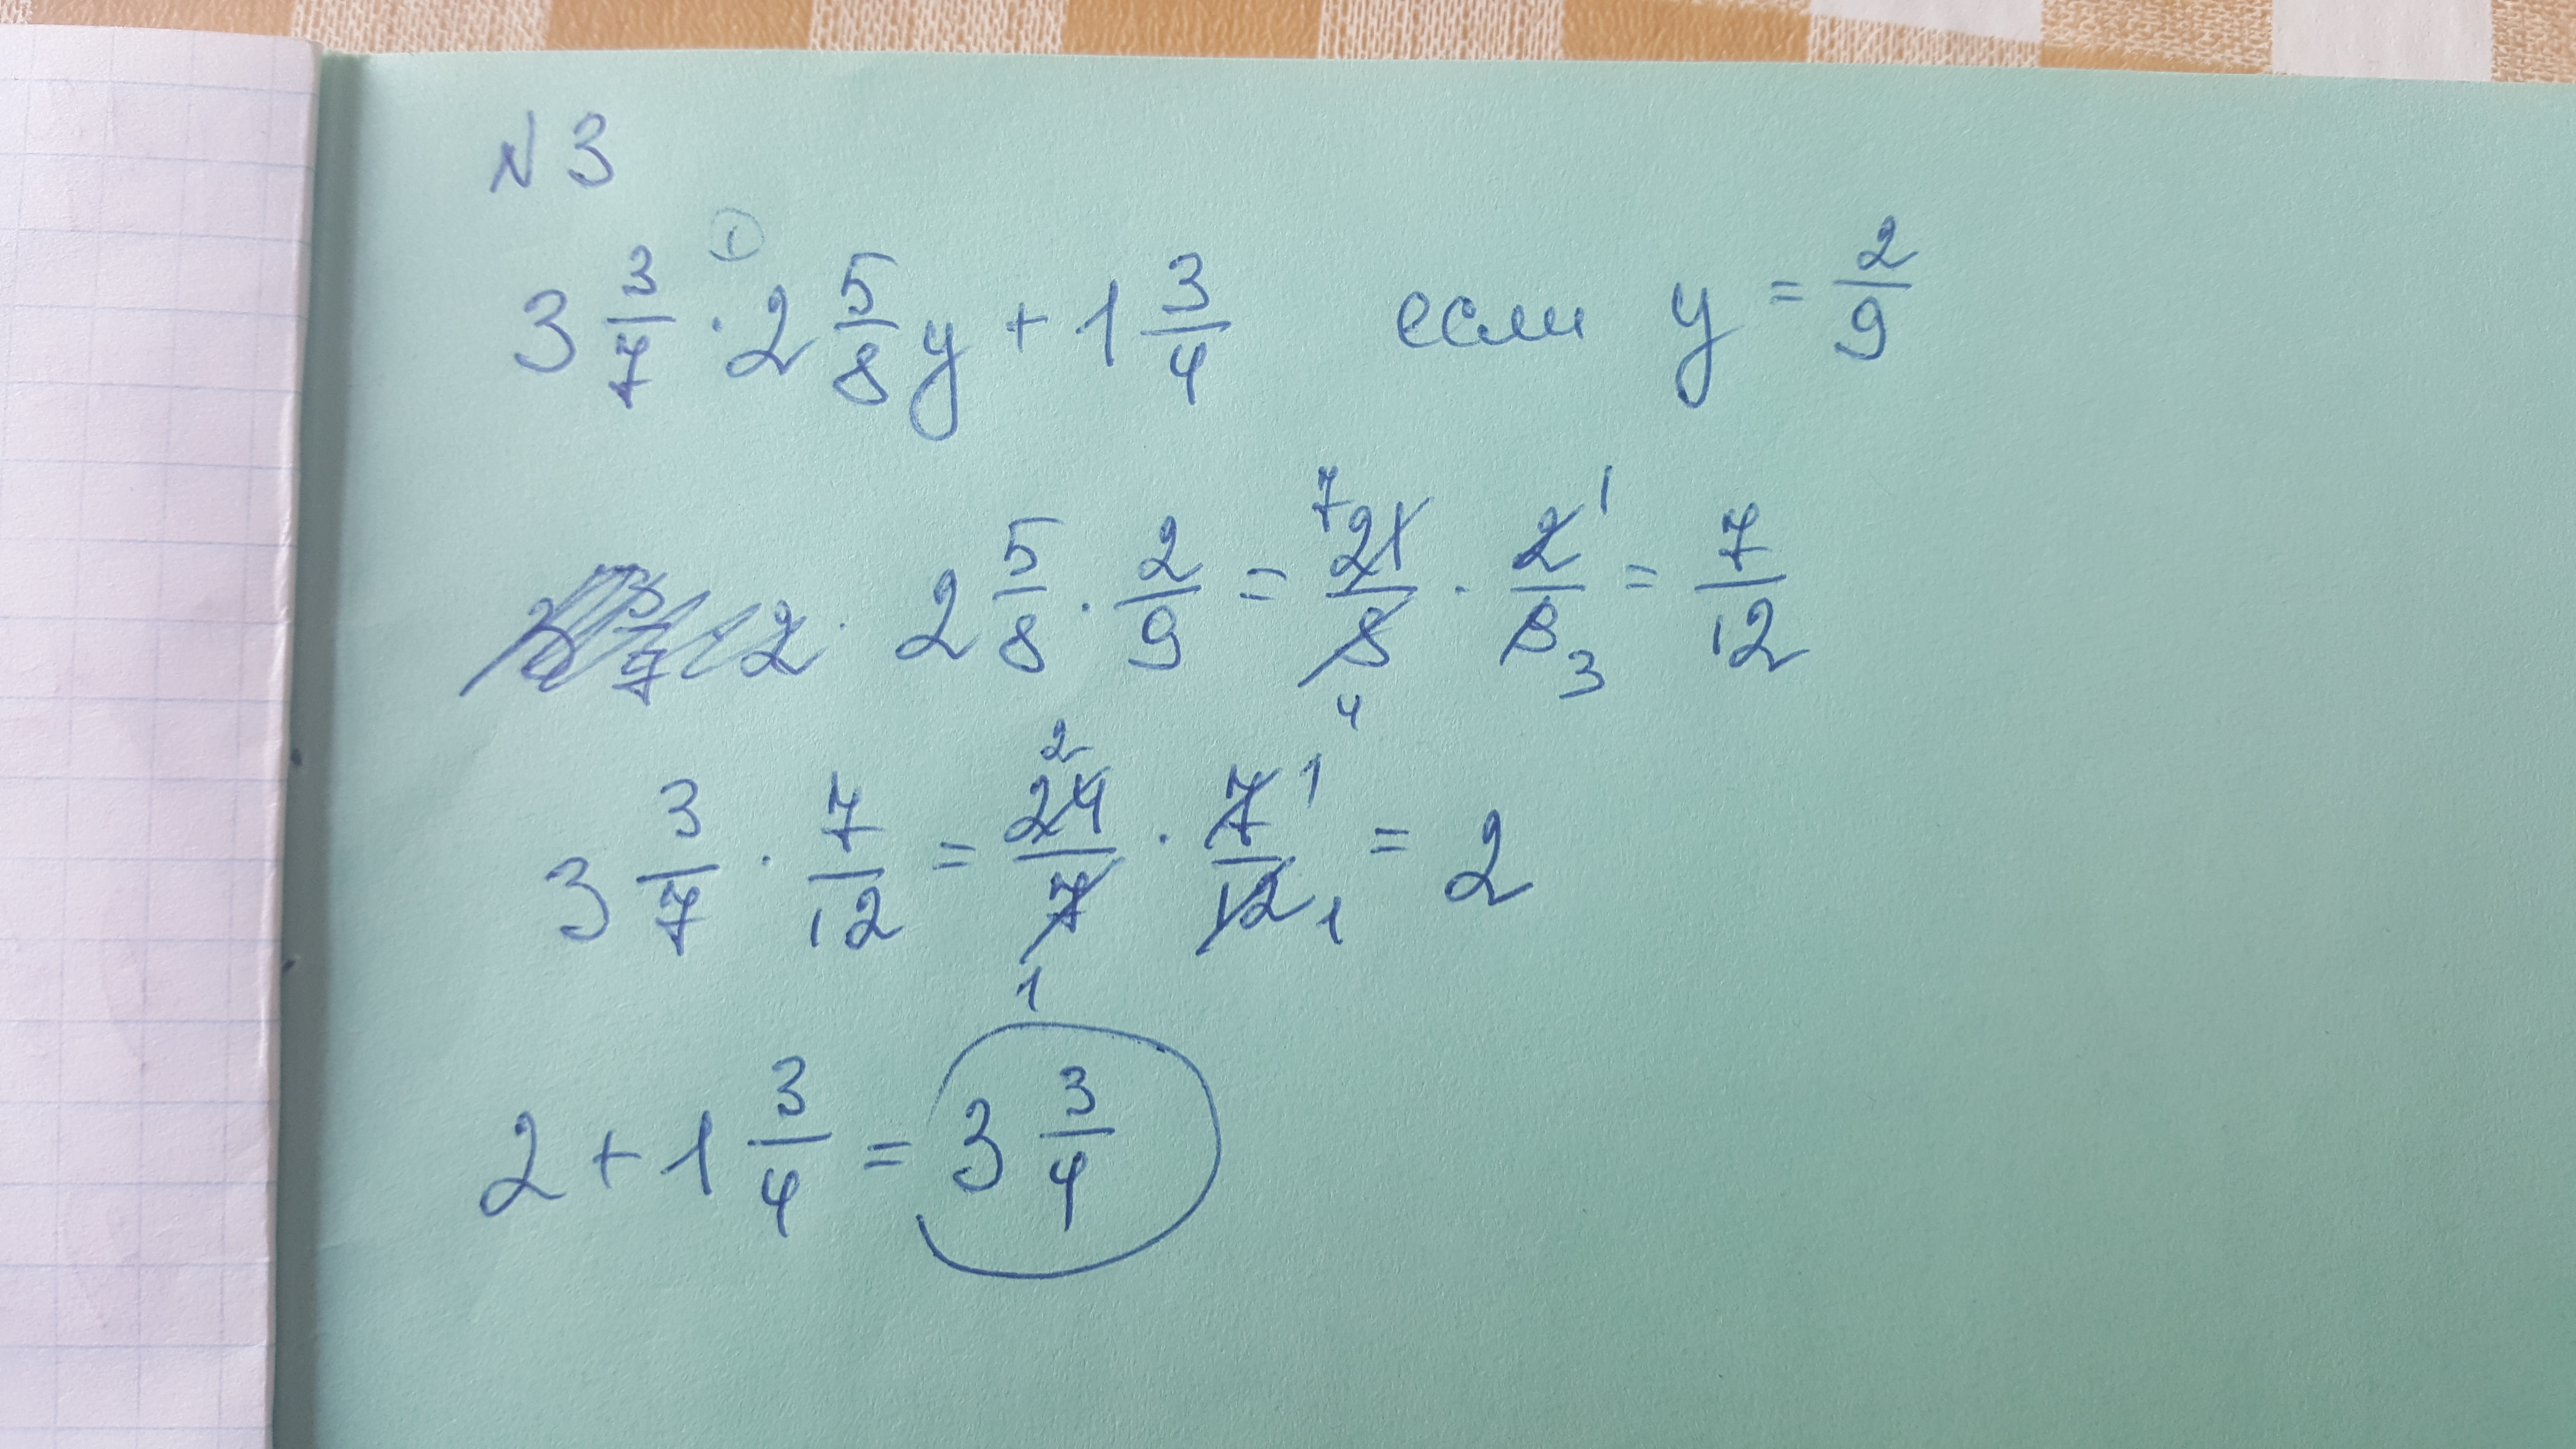 N 3
①
3 3/7 · 2 5/8 y + 1 3/4 если y = 2/9
2 5/8 · 2/9 = 21/8 · 2/9 = 7/12
7 1
4 3
3 3/7 · 7/12 = 24/7 · 7/12 = 2
2 1
1 1
2 + 1 3/4 = 3 3/4